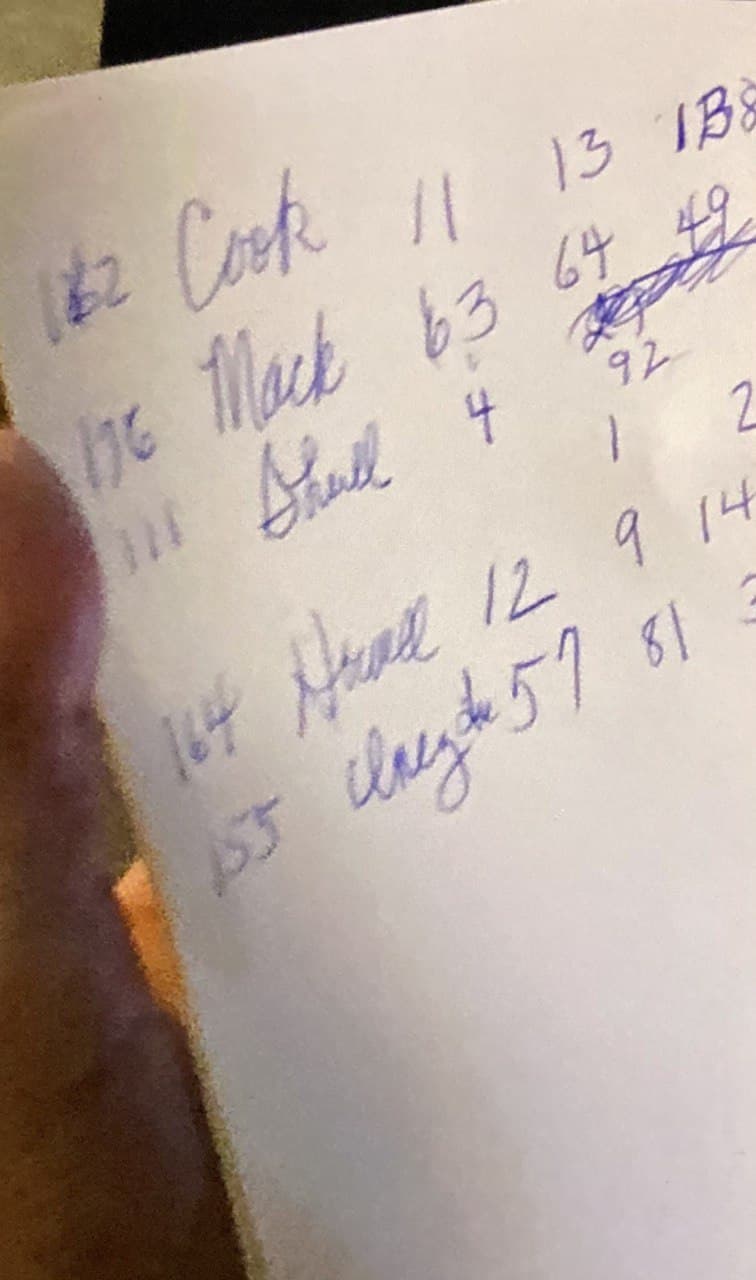 Cook 11 13 1B8
176 Mack 63 64 49
92
111 4 1 2
164 12 9 14
155 57 81 3